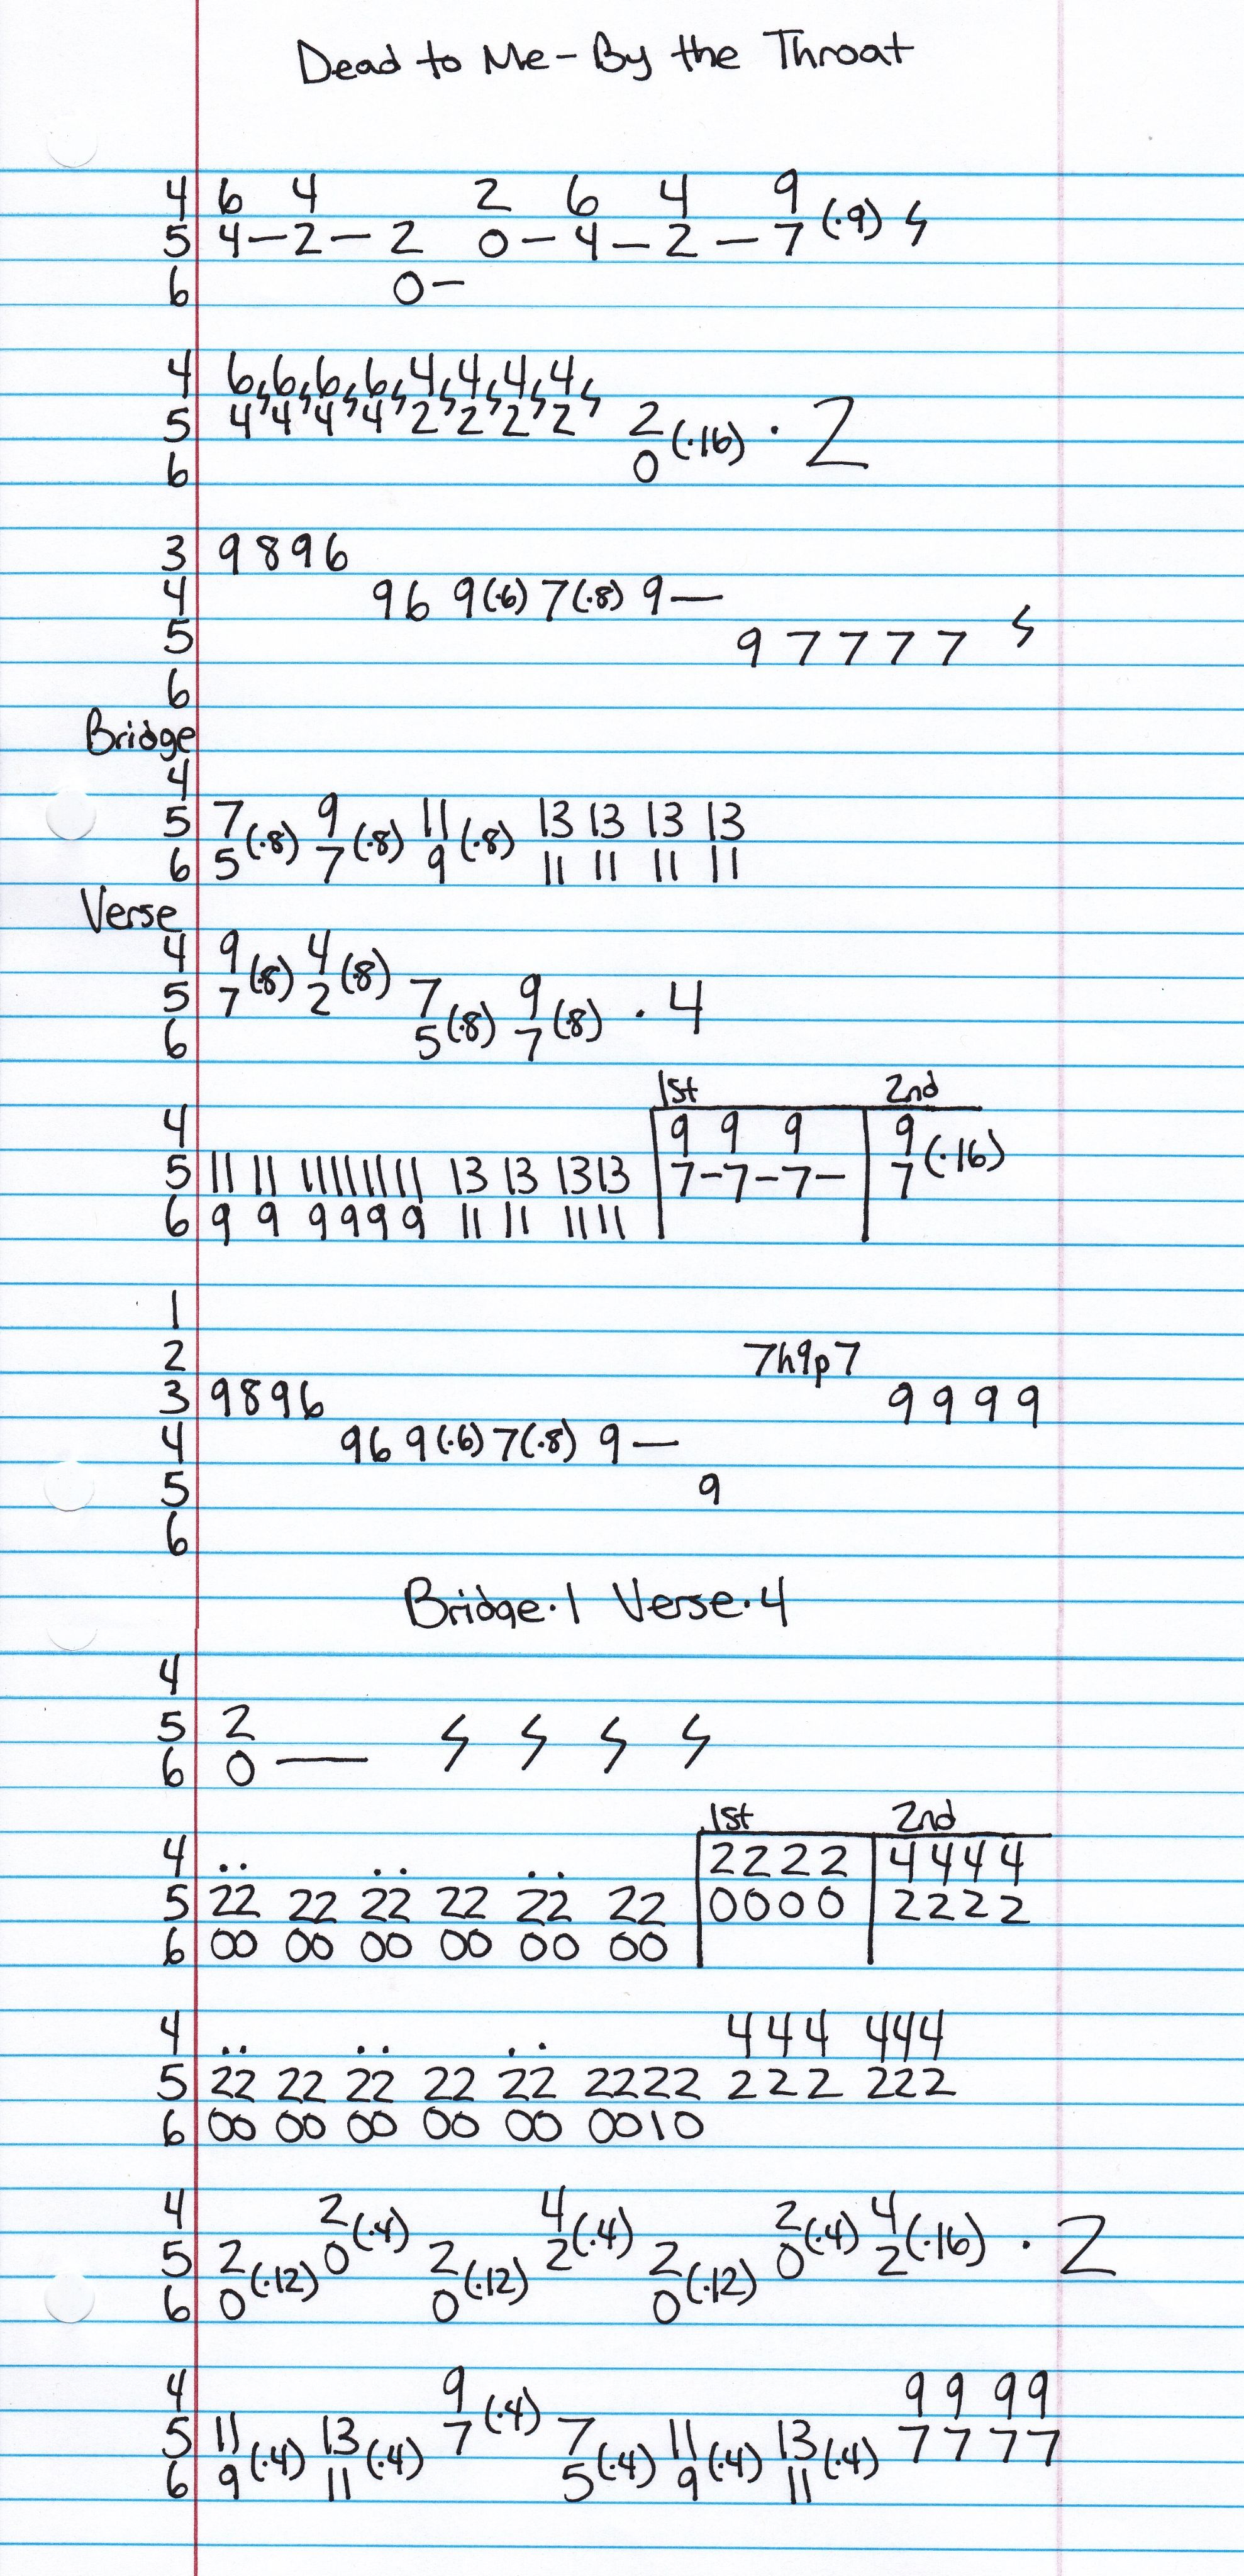 Dead to Me - By the Throat
4 6 4 2 6 4 9
5 4 – 2 – 2 0 – 4 – 2 – 7 (·9) ϟ
6 0 –
4 6 ϟ 6 ϟ 6 ϟ 6 ϟ 4 ϟ 4 ϟ 4 ϟ 4 ϟ
5 4 4 4 4 2 2 2 2 2 (·16) · 2
6 0
3 9 8 9 6
4 9 6 9 (·6) 7 (·8) 9 —
5 9 7 7 7 7 ϟ
6
Bridge
4
5 7 (·8) 9 (·8) 11 (·8) 13 13 13 13
6 5 7 9 11 11 11 11
Verse
4 9 (·8) 4 (·8)
5 7 2 7 (·8) 9 (·8) · 4
6 5 7
1st 2nd
4 9 9 9 9 (·16)
5 11 11 11 11 11 11 13 13 13 13 7 – 7 – 7 – 7
6 9 9 9 9 9 9 11 11 11 11
1
2 7h9p7
3 9 8 9 6 9 9 9 9
4 9 6 9 (·6) 7 (·8) 9 —
5 9
6
Bridge · 1 Verse · 4
4
5 2
6 0 — ϟ ϟ ϟ ϟ
1st 2nd
4 .. .. .. 2 2 2 2 4 4 4 4
5 22 22 22 22 22 22 0 0 0 0 2 2 2 2
6 00 00 00 00 00 00
4 .. .. .. 4 4 4 4 4 4
5 22 22 22 22 22 2222 2 2 2 2 2 2
6 00 00 00 00 00 0010
4 2 (·4) 4 (·4) 2 (·4) 4 (·16) · 2
5 2 (·12) 0 2 (·12) 2 2 (·12) 0 2
6 0 0 0
4 9 (·4) 9 9 9 9
5 11 (·4) 13 (·4) 7 7 (·4) 11 (·4) 13 (·4) 7 7 7 7
6 9 11 5 9 11